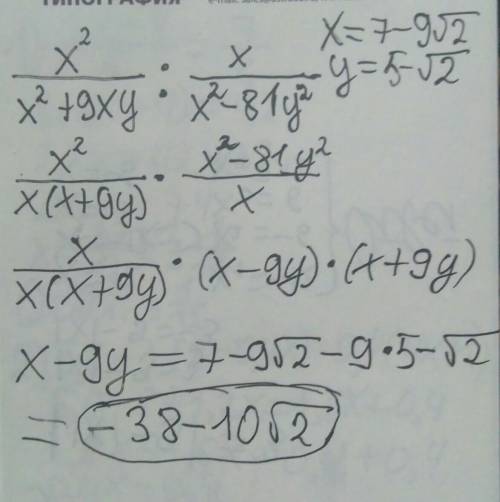 ТИПОГРАФИЯ
x = 7 - 9√2
y = 5 - √2
x² / (x² + 9xy) : x / (x² - 81y²)
x² / (x(x + 9y)) · (x² - 81y²) / x
x / (x(x + 9y)) · (x - 9y) · (x + 9y)
x - 9y = 7 - 9√2 - 9 · 5 - √2
= -38 - 10√2